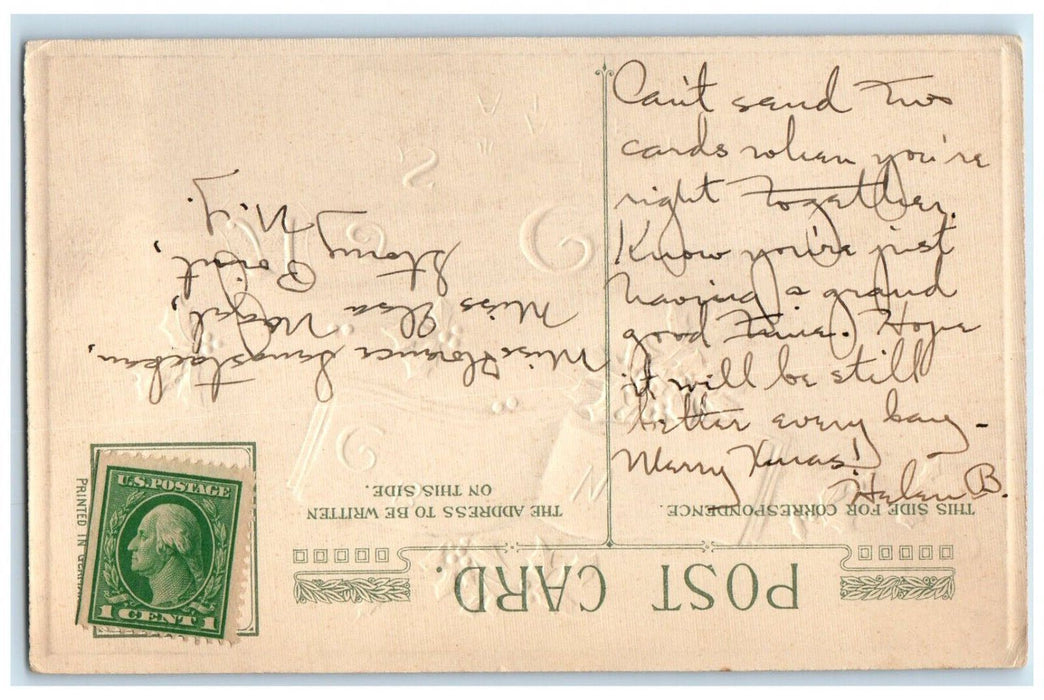 Can't send two
cards when you're
right together.
Know you're just
having a grand
good time. Hope
it will be still
better every day -
Merry Xmas!
Helen B.
POST CARD.
THIS SIDE FOR CORRESPONDENCE.
THE ADDRESS TO BE WRITTEN
ON THIS SIDE.
Miss Florence
Miss Elsa
Stony Point,
N.Y.
PRINTED IN
U.S. POSTAGE
1 CENT 1